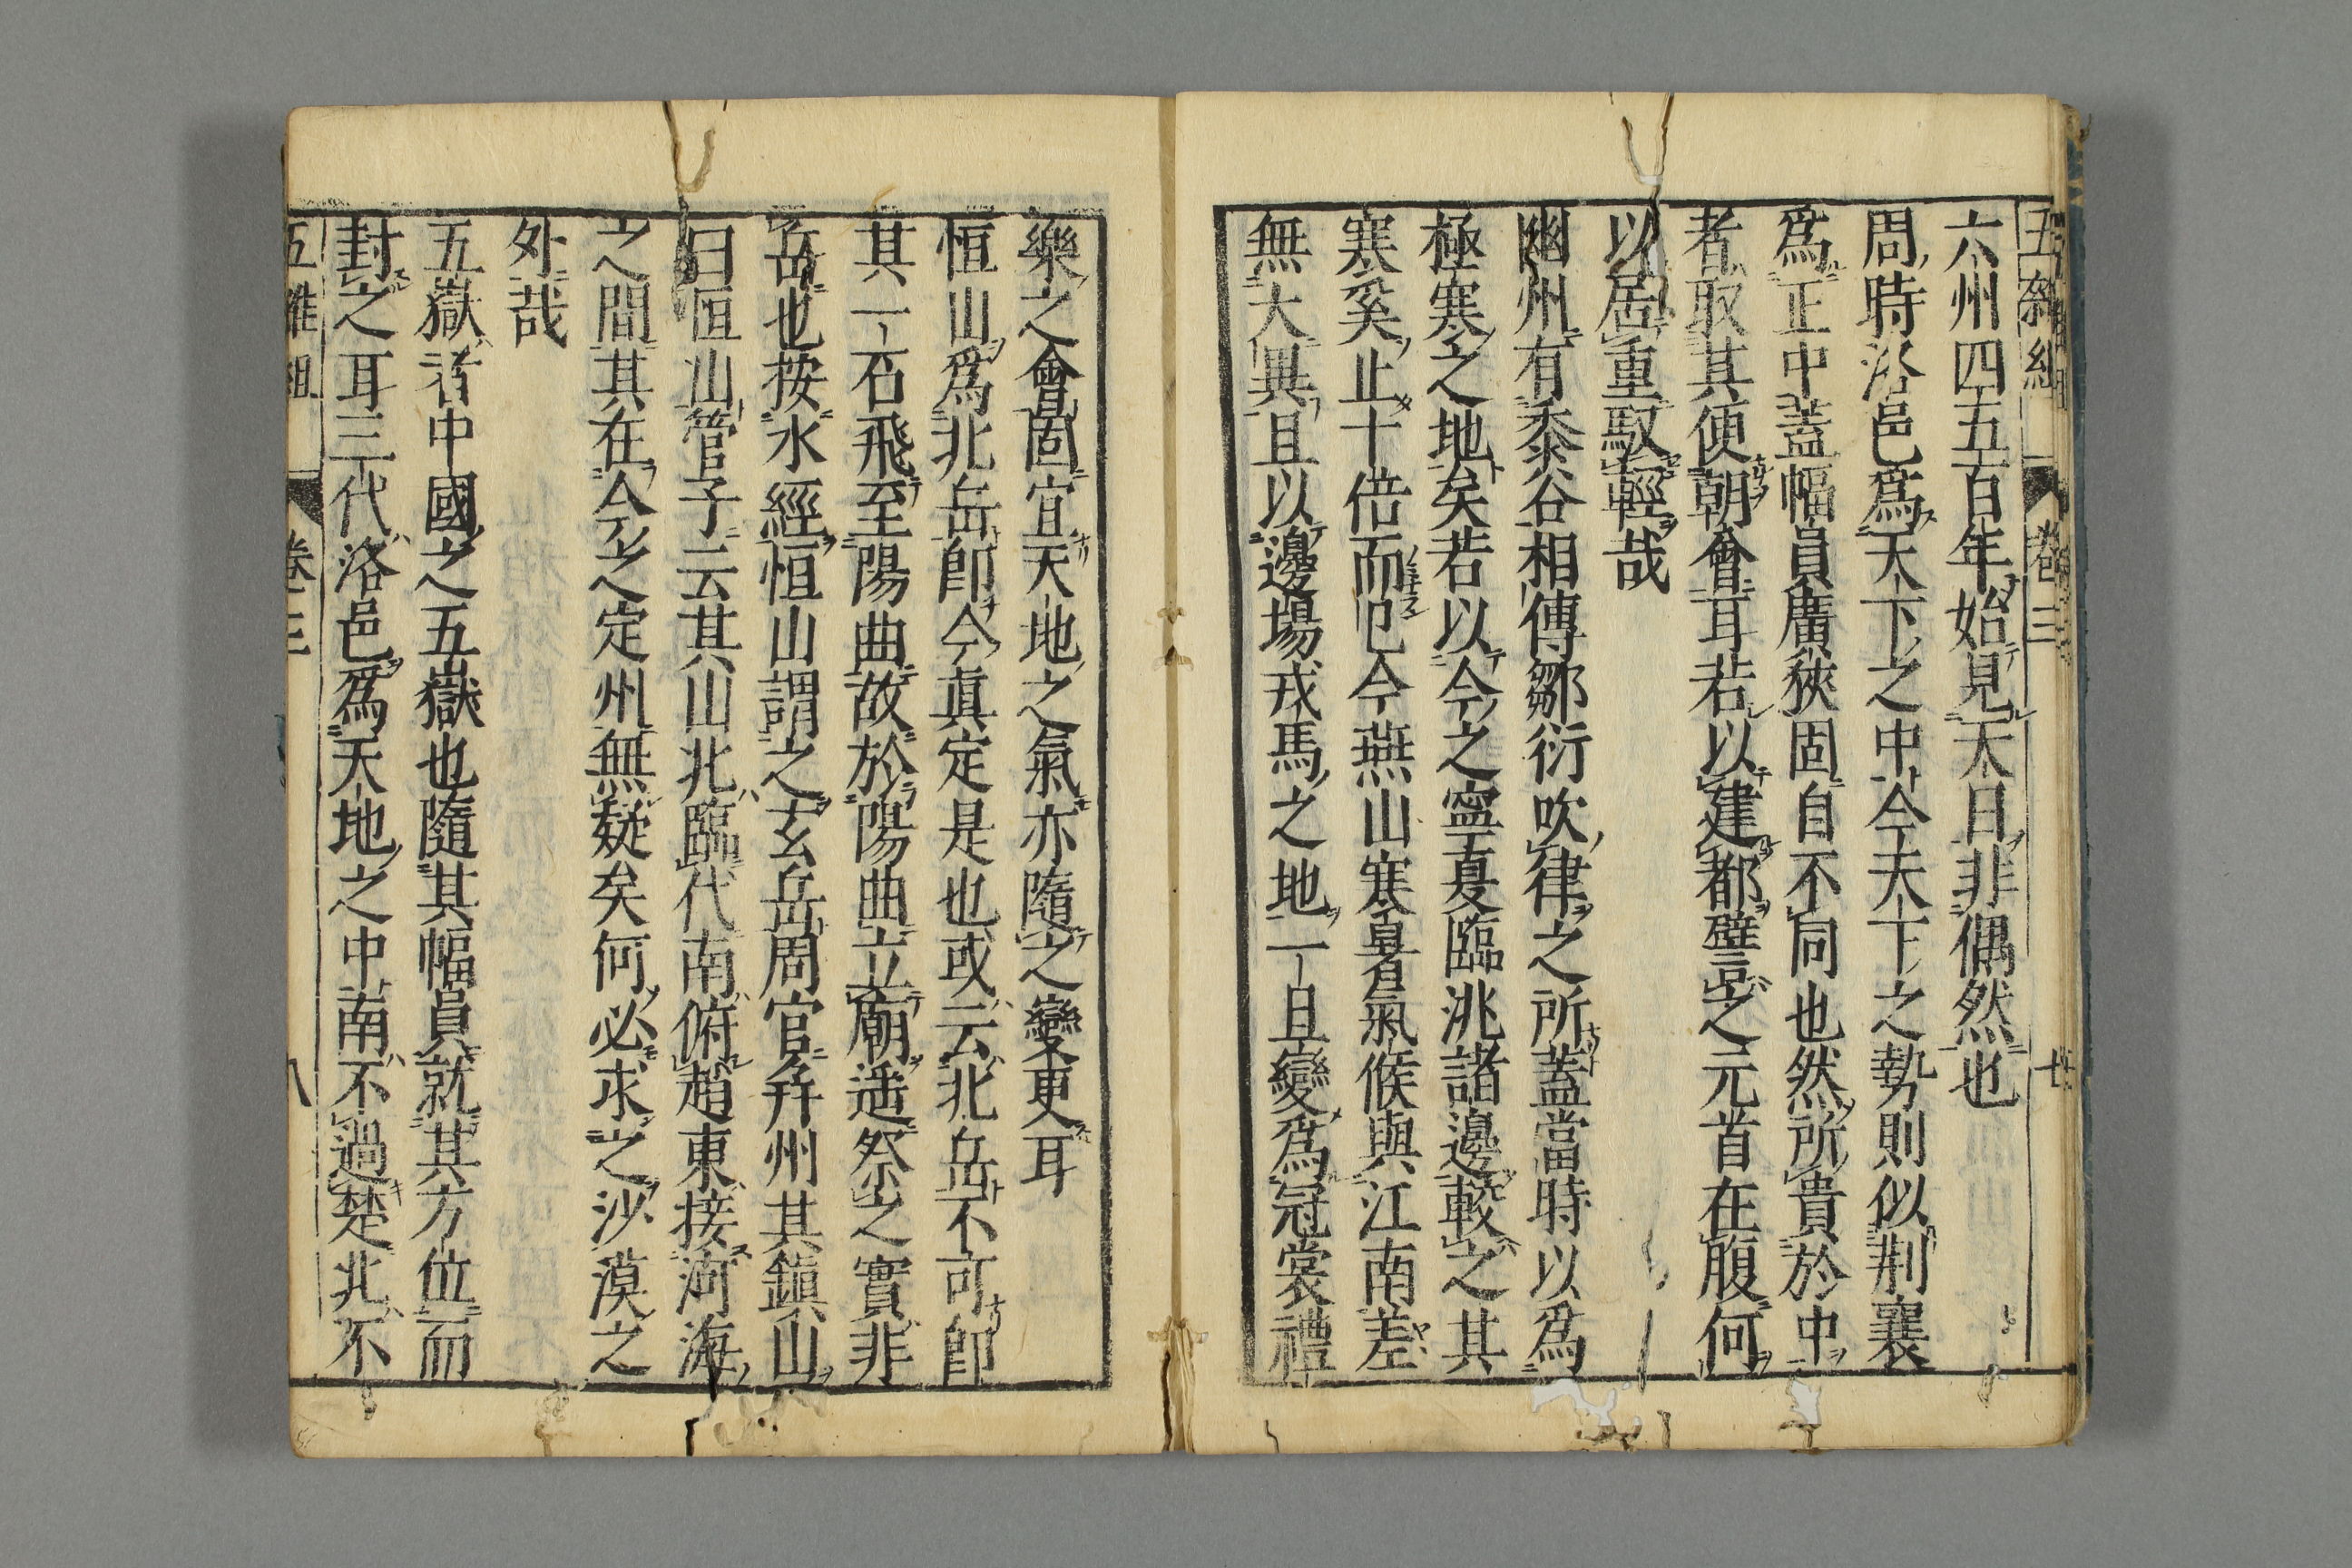 五雜組 卷三 七
六州四五百年始見天日非偶然也
周時洛邑爲天下之中今天下之勢則似荆襄
爲正中蓋幅員廣狹固自不同也然所貴於中
者取其便朝會耳若以建都譬之元首在腹何
以居重馭輕哉
幽州有黍谷相傳鄒衍吹律之所蓋當時以爲
極寒之地矣若以今之寧夏臨洮諸邊較之其
寒奚止十倍而已今燕山寒暑氣候與江南差
無大異且以邊場戎馬之地一旦變爲冠裳禮
樂之會固宜天地之氣亦隨之變更耳
恒山爲北岳卽今眞定是也或云北岳不可卽
其一石飛至陽曲故於陽曲立廟遥祭之實非
岳也按水經恒山謂之玄岳周官幷州其鎭山
曰恒山管子云其山北臨代南俯趙東接河海
之間其在今之定州無疑矣何必求之沙漠之
外哉
五嶽者中國之五嶽也隨其幅員就其方位而
封之耳三代洛邑爲天地之中南不過楚北不
五雜組 卷三 八